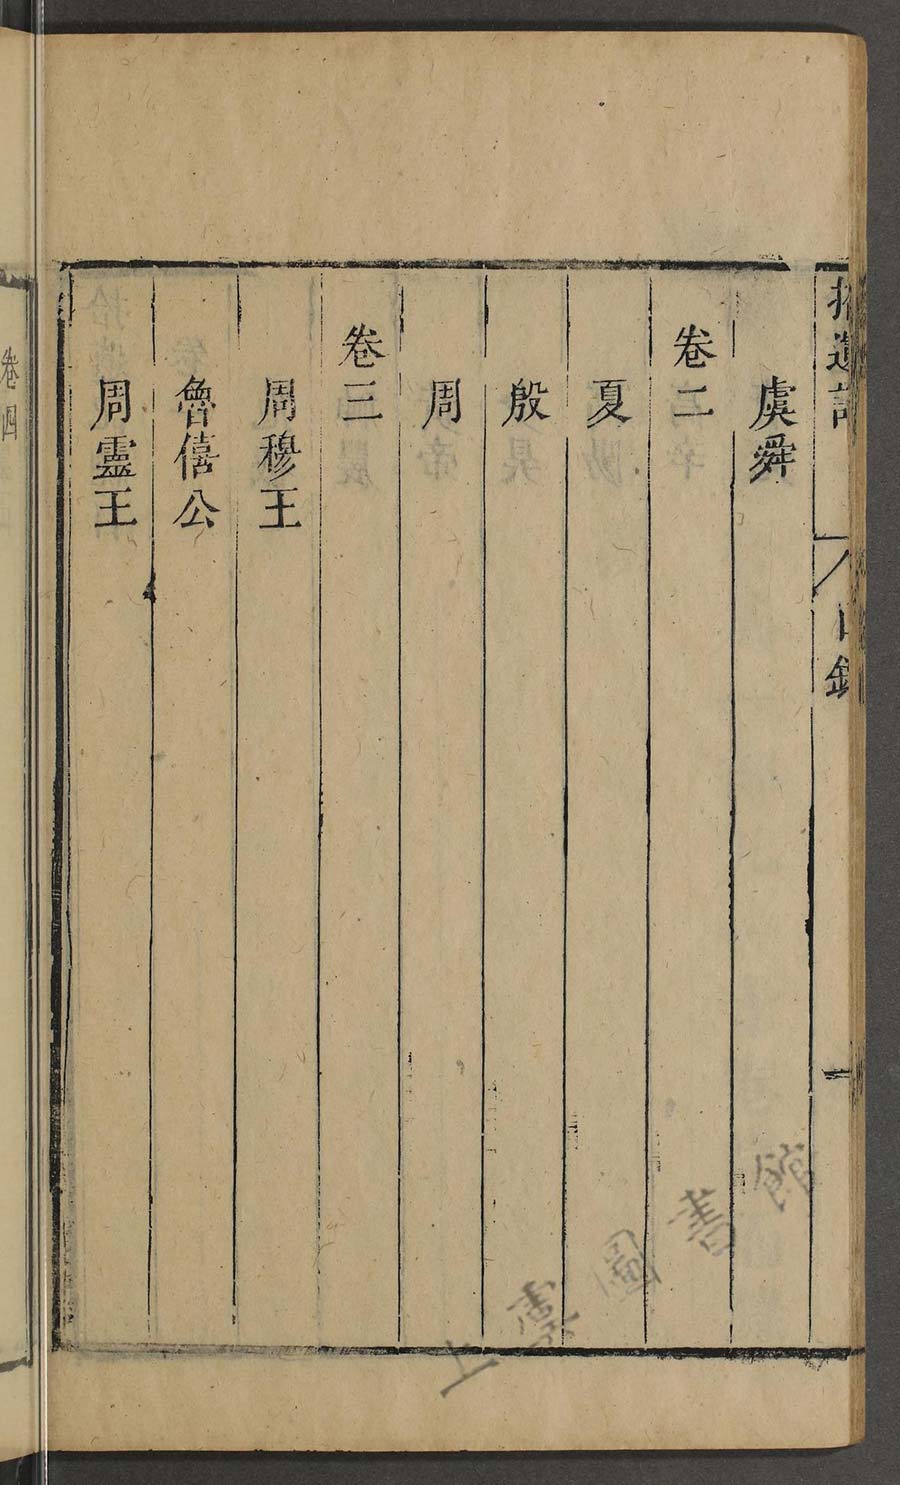 拾遺記
目錄
虞舜
卷二
夏
殷
周
卷三
周穆王
魯僖公
周靈王
卷四
上虞圖書館